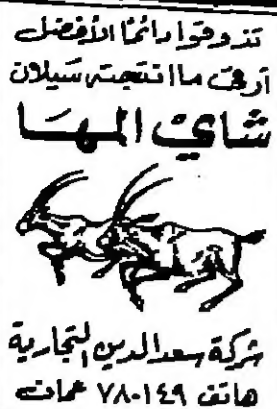 تذوقوا دائمًا الأفضل
أرقى ما انتجته سيلان
شاي المها
شركة سعد الدين التجارية
هاتف ٧٨٠١٤٩ عمان